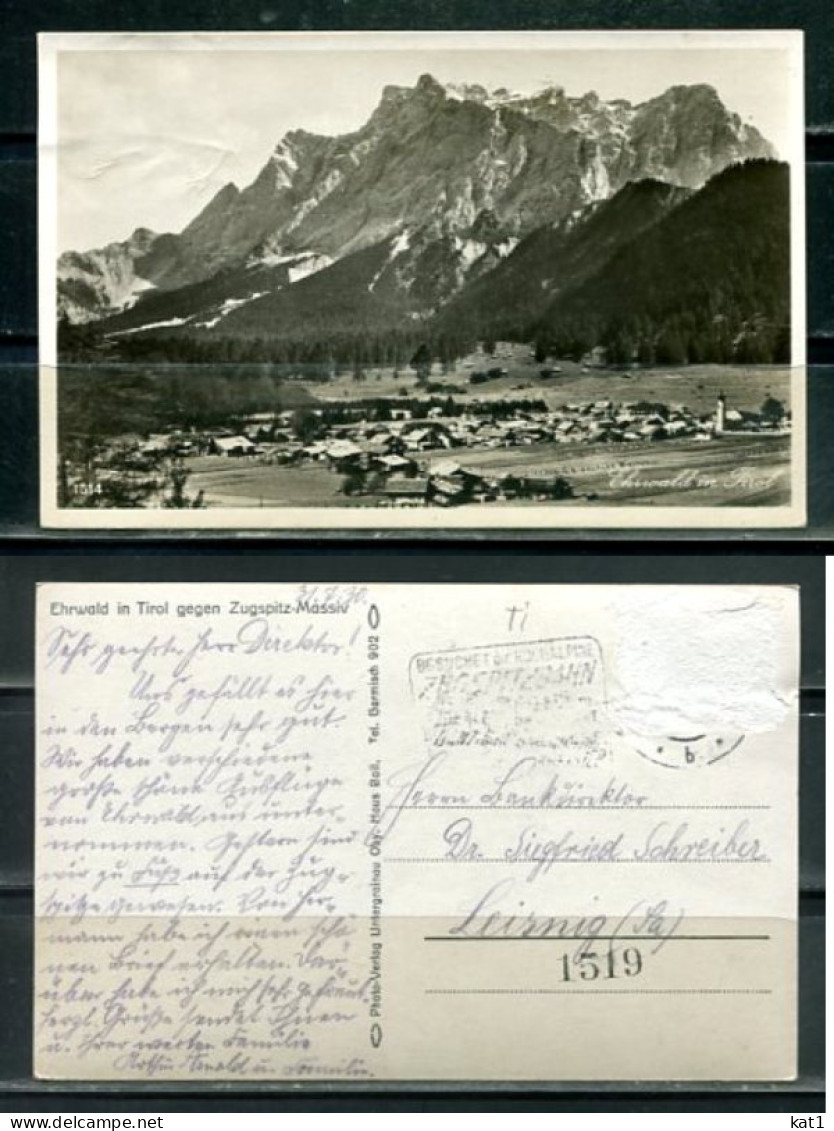 1514
Ehrwald in Tirol
Ehrwald in Tirol gegen Zugspitz-Massiv
31.7.30.
Sehr geehrter Herr Direktor!
Uns gefällt es hier
in den Bergen sehr gut.
Wir haben verschiedene
große schöne Ausflüge
von Ehrwald aus unter-
nommen. Gestern sind
wir zu Fuß auf der Zug-
spitze gewesen. Von Her-
mann habe ich einen schö-
nen Brief erhalten. Dar-
über habe ich mich sehr gefreut.
Herzl. Grüße sendet Ihnen
u. Ihrer werten Familie
Arthur Arnold u. Familie.
Photo-Verlag Untergrainau Obb. Haus Boll. Tel. Garmisch 902
Ti
BESUCHET
ZUGSPITZBAHN
b
Herrn Bankdirektor
Dr. Siegfried Schreiber
Leisnig (Sa)
1519
kat1